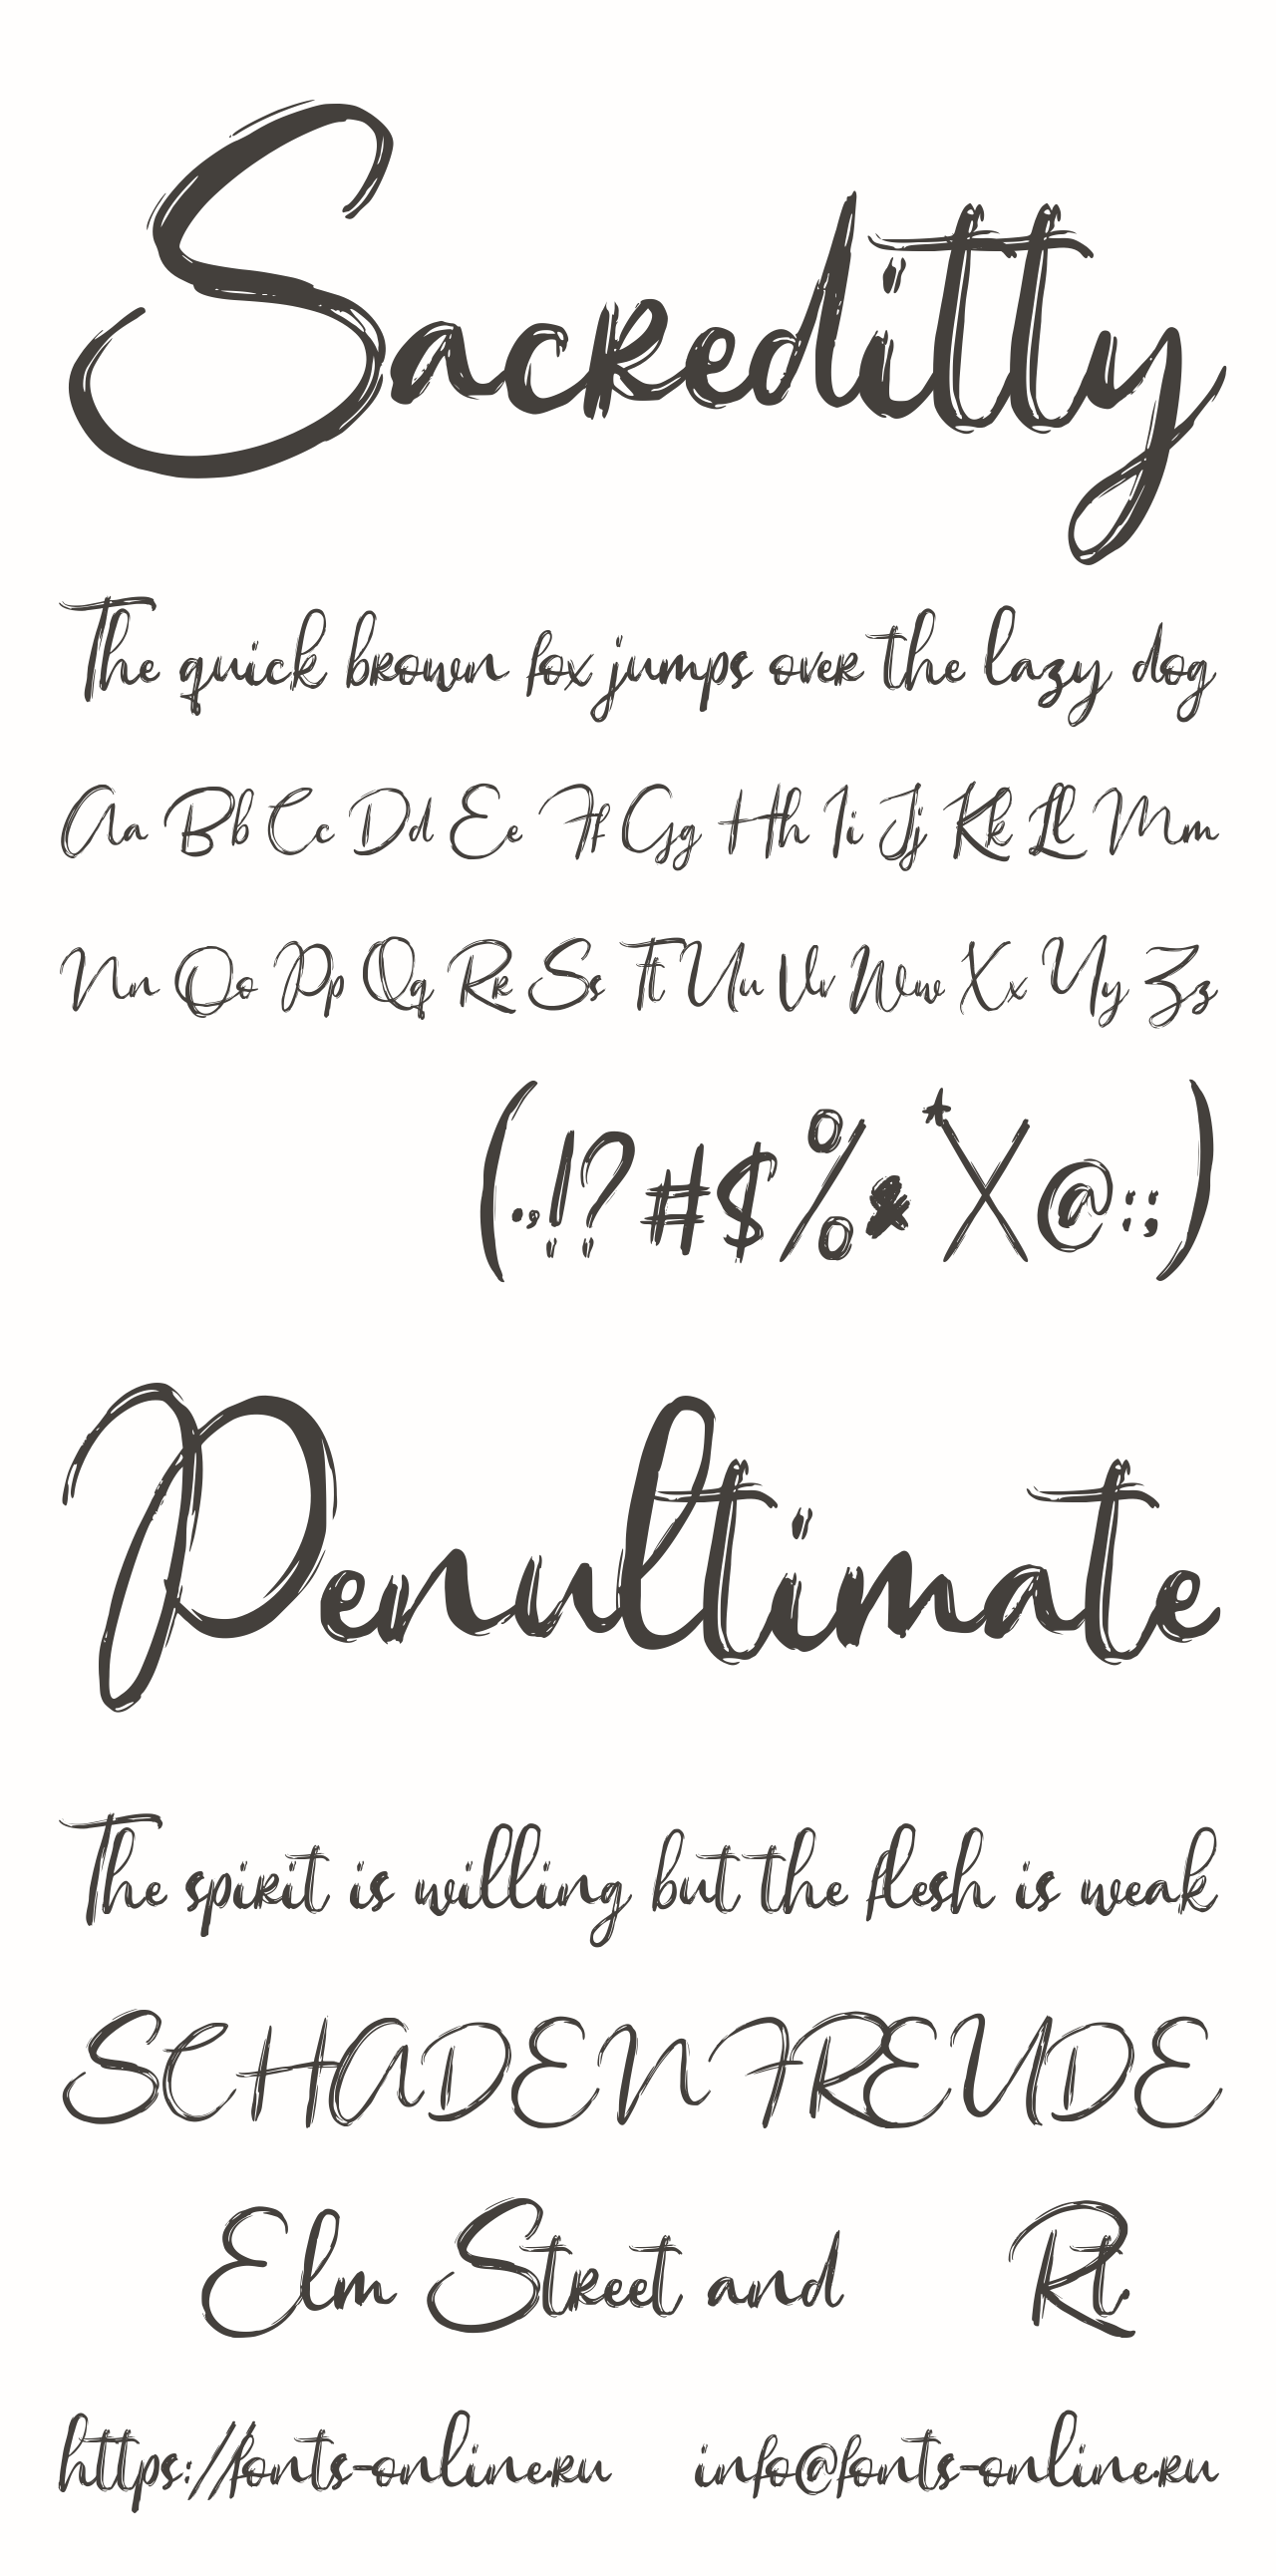 Sacreditty
The quick brown fox jumps over the lazy dog
Aa Bb Cc Dd Ee Ff Gg Hh Ii Jj Kk Ll Mm
Nn Oo Pp Qq Rr Ss Tt Uu Vv Ww Xx Yy Zz
(.,!?#$%&*X@:;)
Penultimate
The spirit is willing but the flesh is weak
SCHADENFREUDE
Elm Street and Rt.
https://fonts-online.ru info@fonts-online.ru